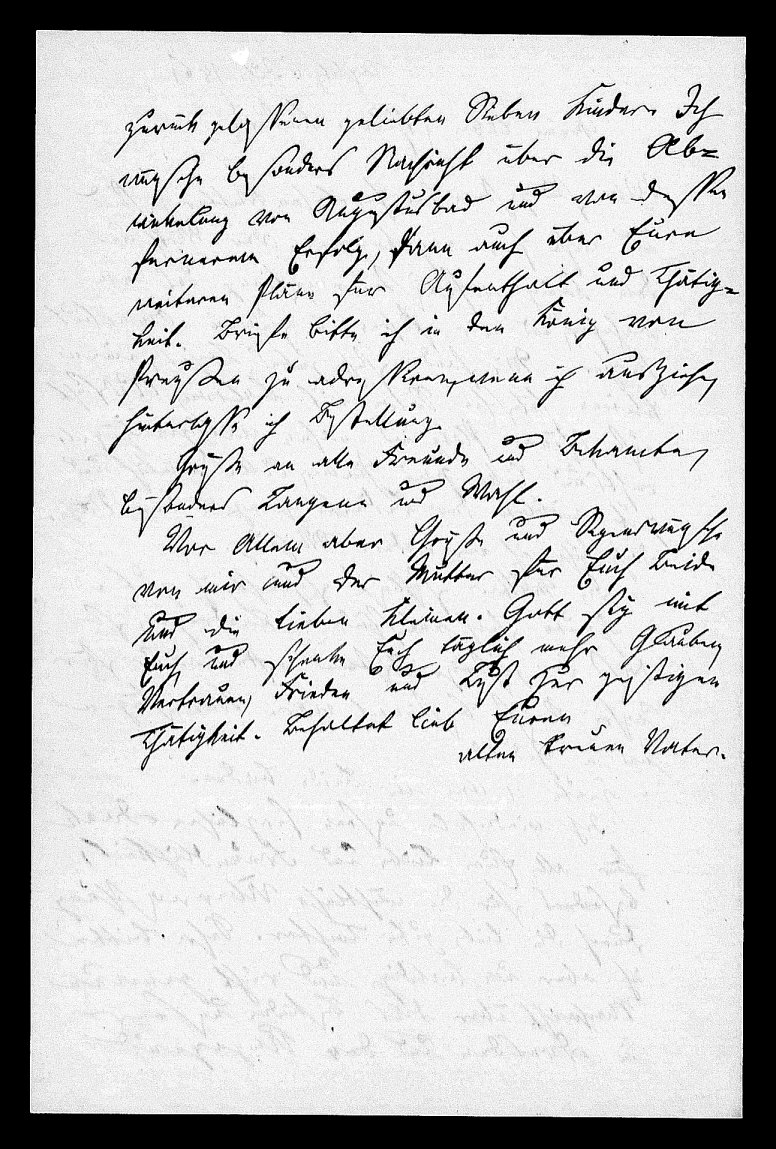 zurück gelassenen geliebten Sieben Kinder. Ich
wünsche besonders Nachricht über die Ab=
wickelung von Augustusbad und von dessen
fernerem Erfolg, dann auch über Eure
weiteren Pläne für Aufenthalt und Thätig=
keit. Briefe bitte ich in den König von
Preußen zu adressieren, wenn ich ausziehe,
hinterlasse ich Bestellung.
Grüße an alle Freunde und Bekannte,
besonders Langenn und Wahl.
Vor Allem aber Grüße und Segenswünsche
von mir und der Mutter für Euch Beide
und die lieben Kleinen. Gott sey mit
Euch und schenke Euch täglich mehr Glauben,
Vertrauen, Frieden und Lust zur geistigen
Thätigkeit. Behaltet lieb Euren
alten treuen Vater.